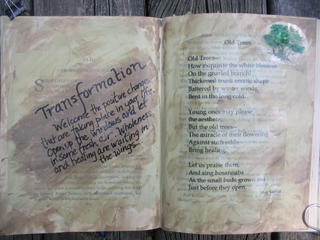 Transformation
Welcome the positive changes
that are taking place in your life.
Open up the windows and let
in some fresh air. Wholeness
and healing are waiting in
the wings.
Old Trees
Old Trees—
How exquisite the white blossom
On the gnarled branch!
Thickened trunk, erratic shape
Battered by winter winds,
Bent in the long cold.
Young ones may please
the aesthete,
But the old trees—
The miracle of their flowering
Against such odds—
Bring healing.
Let us praise them,
And sing hosannahs
As the small buds grow red
Just before they open.